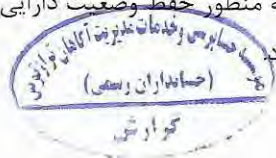 ه منظور حفظ وضعیت دارایی
موسسه حسابرسی و خدمات مدیریت آگاهان تراز
(حسابداران رسمی)
گزارش